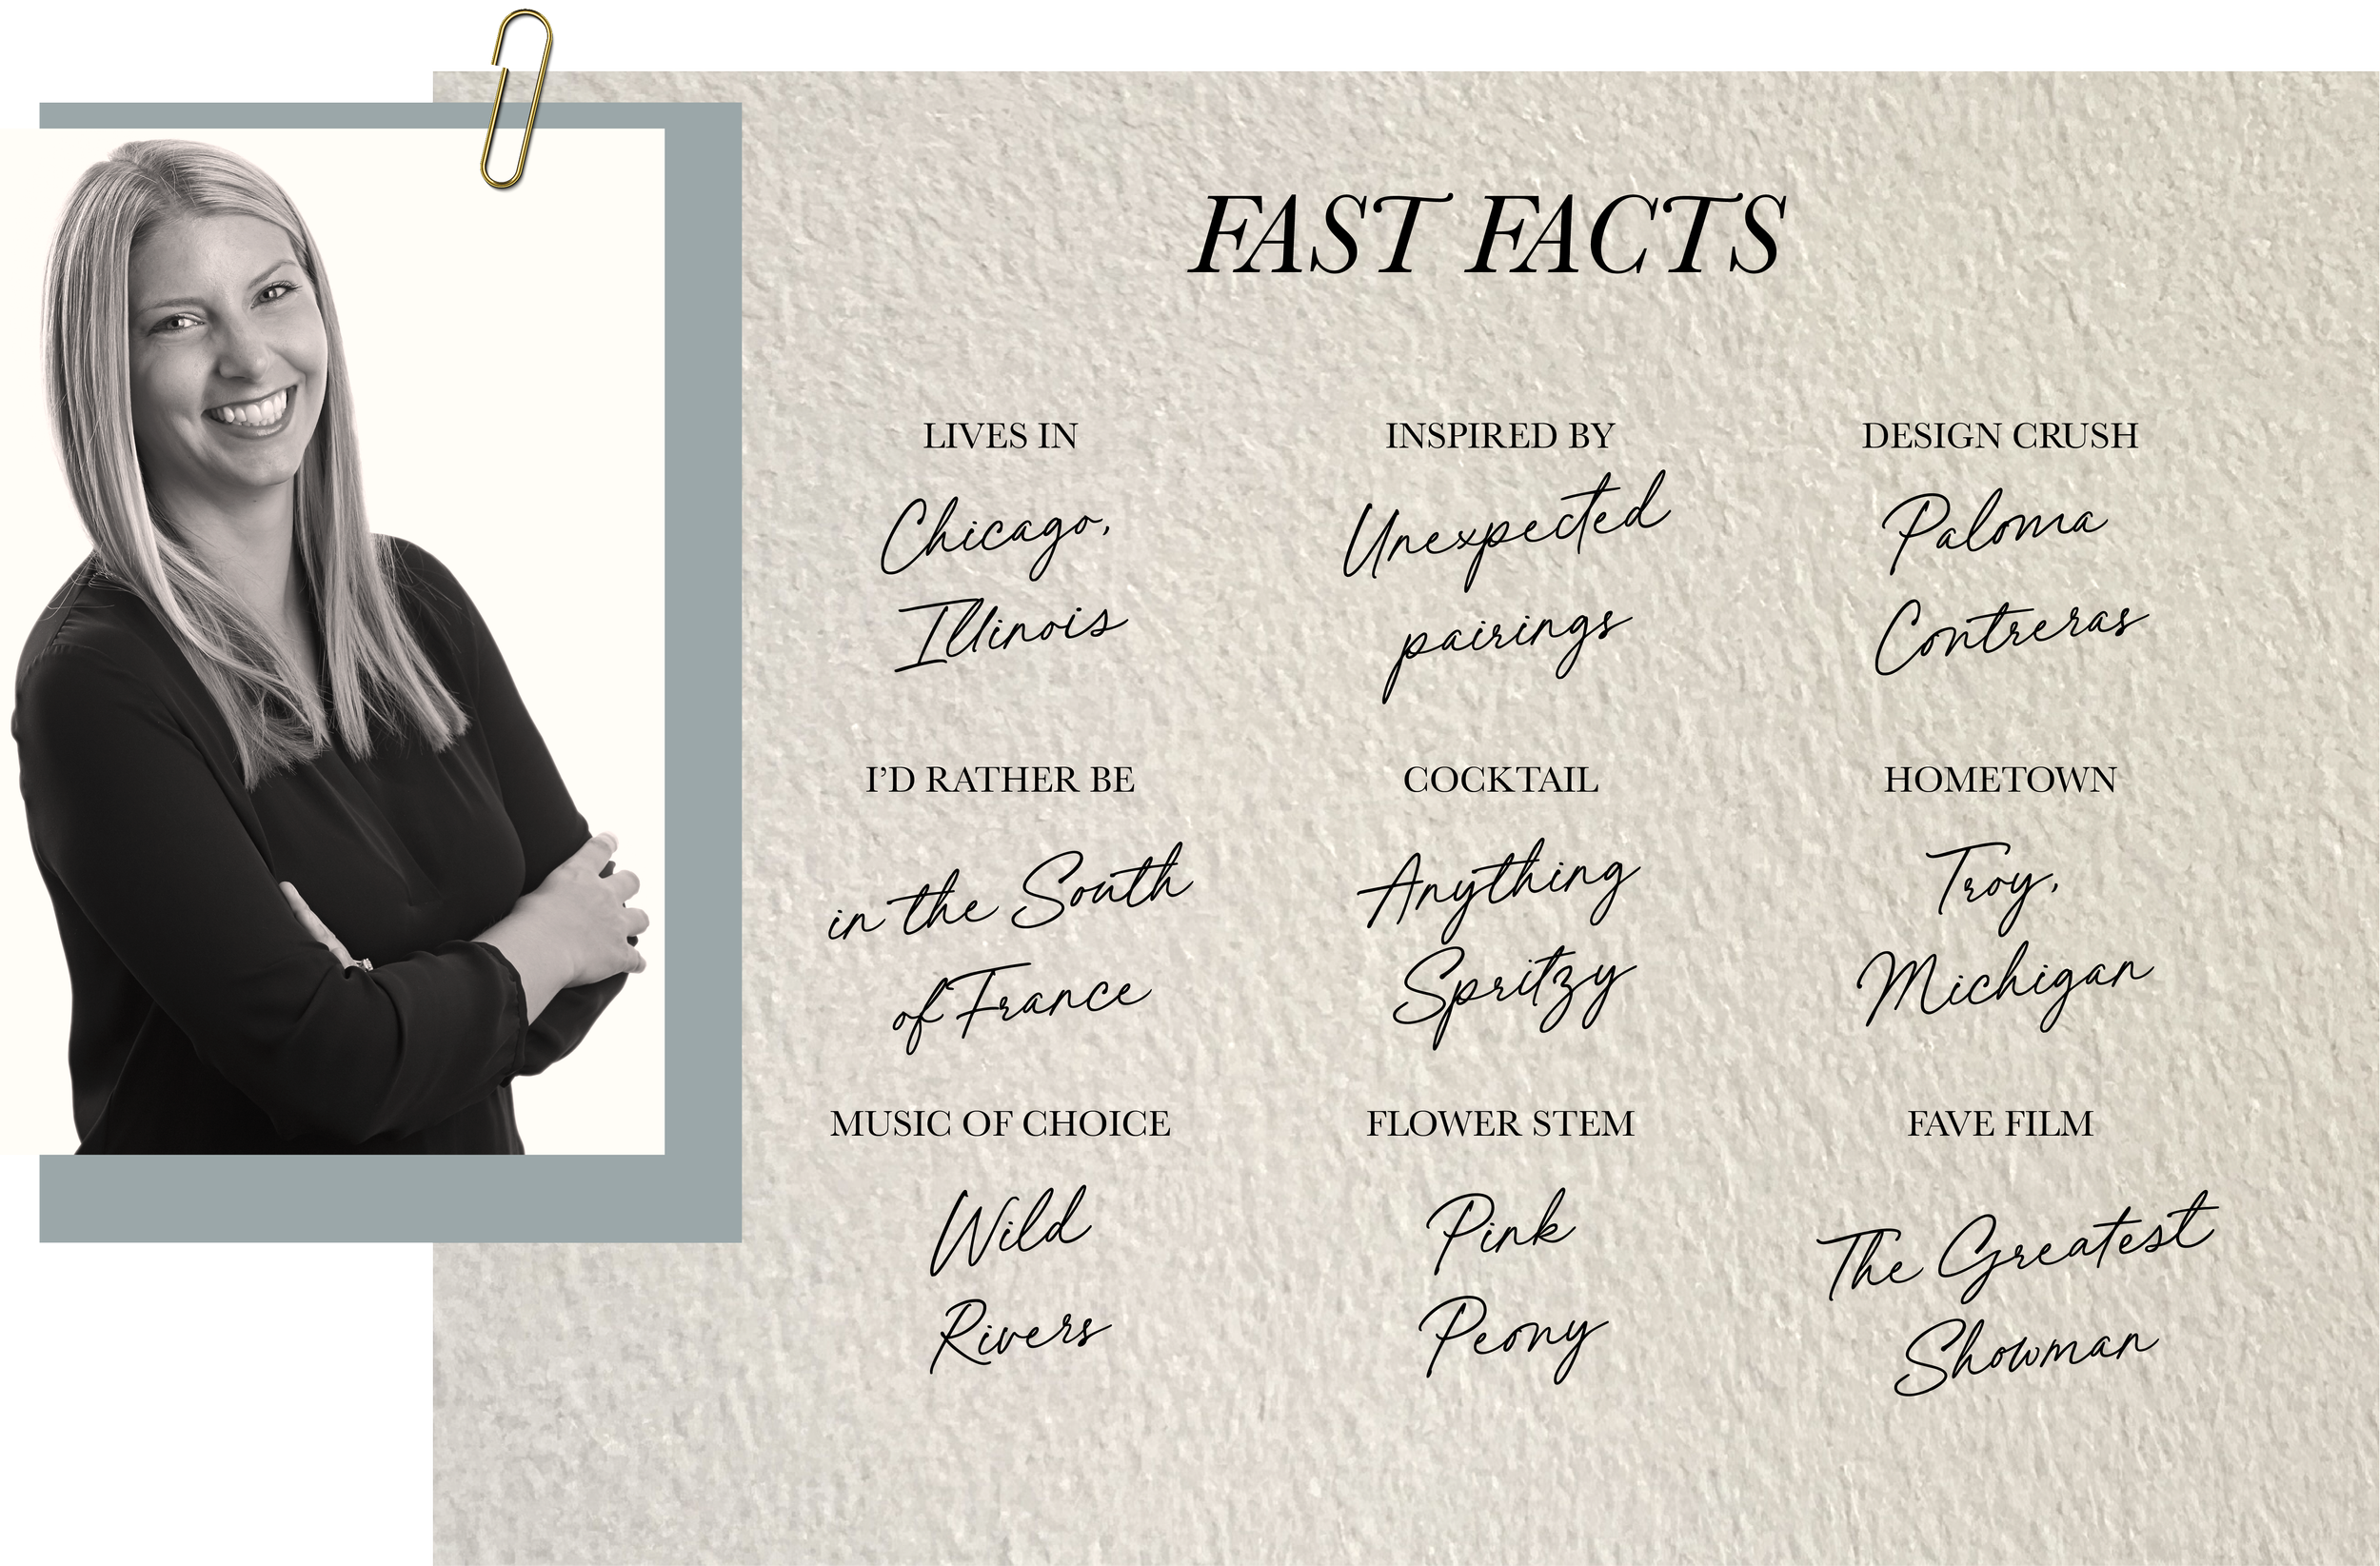 FAST FACTS
LIVES IN
Chicago,
Illinois
INSPIRED BY
Unexpected
pairings
DESIGN CRUSH
Paloma
Contreras
I'D RATHER BE
in the South
of France
COCKTAIL
Anything
Spritzy
HOMETOWN
Troy,
Michigan
MUSIC OF CHOICE
Wild
Rivers
FLOWER STEM
Pink
Peony
FAVE FILM
The Greatest
Showman